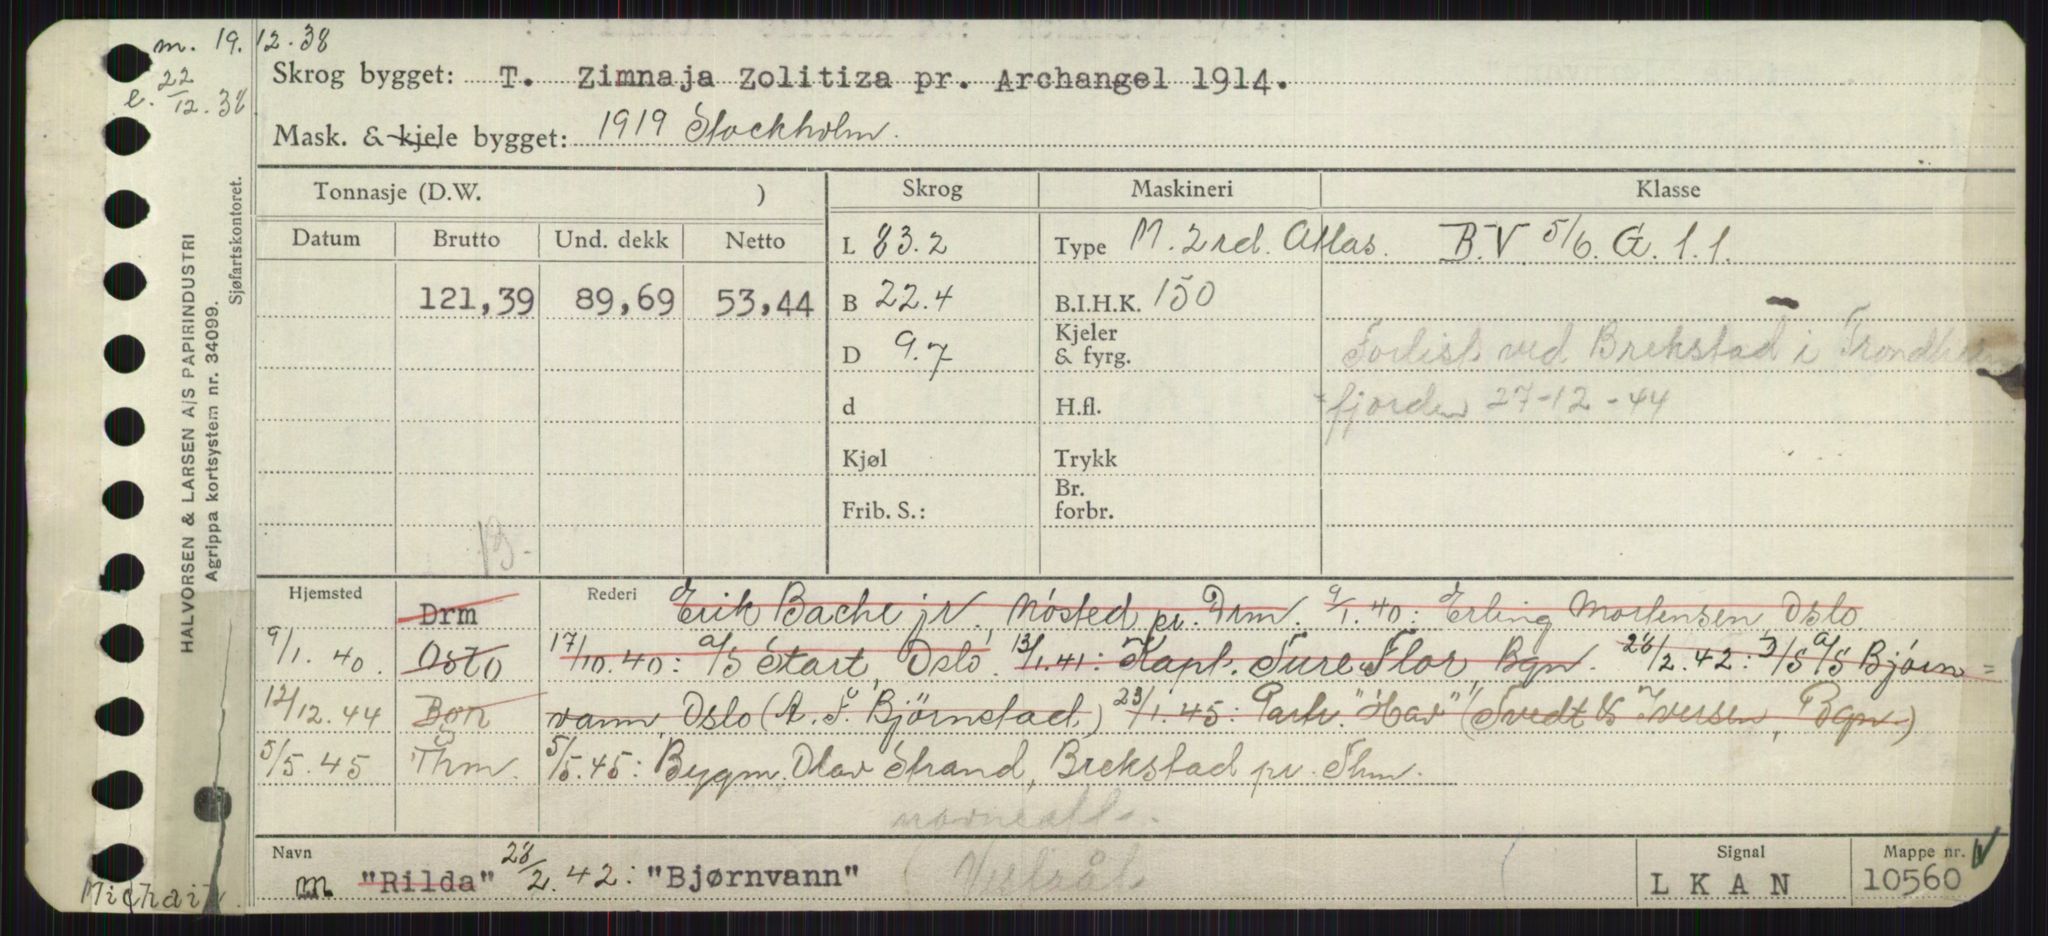 m. 19.12.38
e. 22/12.38
Skrog bygget: T. Zimnaja Zolitiza pr. Archangel 1914.
Mask. & kjele bygget: 1919 Stockholm.
HALVORSEN & LARSEN A/S PAPIRINDUSTRI
Agrippa kortsystem nr. 34099.
Sjøfartskontoret.
Tonnasje (D.W. ) Skrog Maskineri Klasse
Datum Brutto Und. dekk Netto L 83.2 Type M. 2 rd. Atlas. B.V. 5/6. G. 1.1.
121,39 89,69 53,44 B 22.4 B.I.H.K. 150
D 9.7 Kjeler & fyrg. Forlist ved Brekstad i Trondheims
d H.fl. fjorden 27-12-44
Kjøl Trykk
Frib. S.: Br. forbr.
Hjemsted Drm Rederi Erik Bache jr., Nøsted pr. Drm. 9/1.40: Erling Mortensen, Oslo
9/1.40. Oslo 17/10.40: A/S Start, Oslo. 13/1.41: Kapt. Ture Flor, Bgn. 28/2.42: D/S A/S Bjørn=
12/12.44 Bgn vann, Oslo (A. F. Bjørnstad) 23/1.45: Partr. "Hav" (Tvedt & Iversen, Bgn.)
5/5.45 Thm. 5/5.45: Bygm. Olav Strand, Brekstad pr. Thm.
Navn m "Rilda" 28/2.42: "Bjørnvann"
Signal LKAN
Mappe nr. 10560
Michail